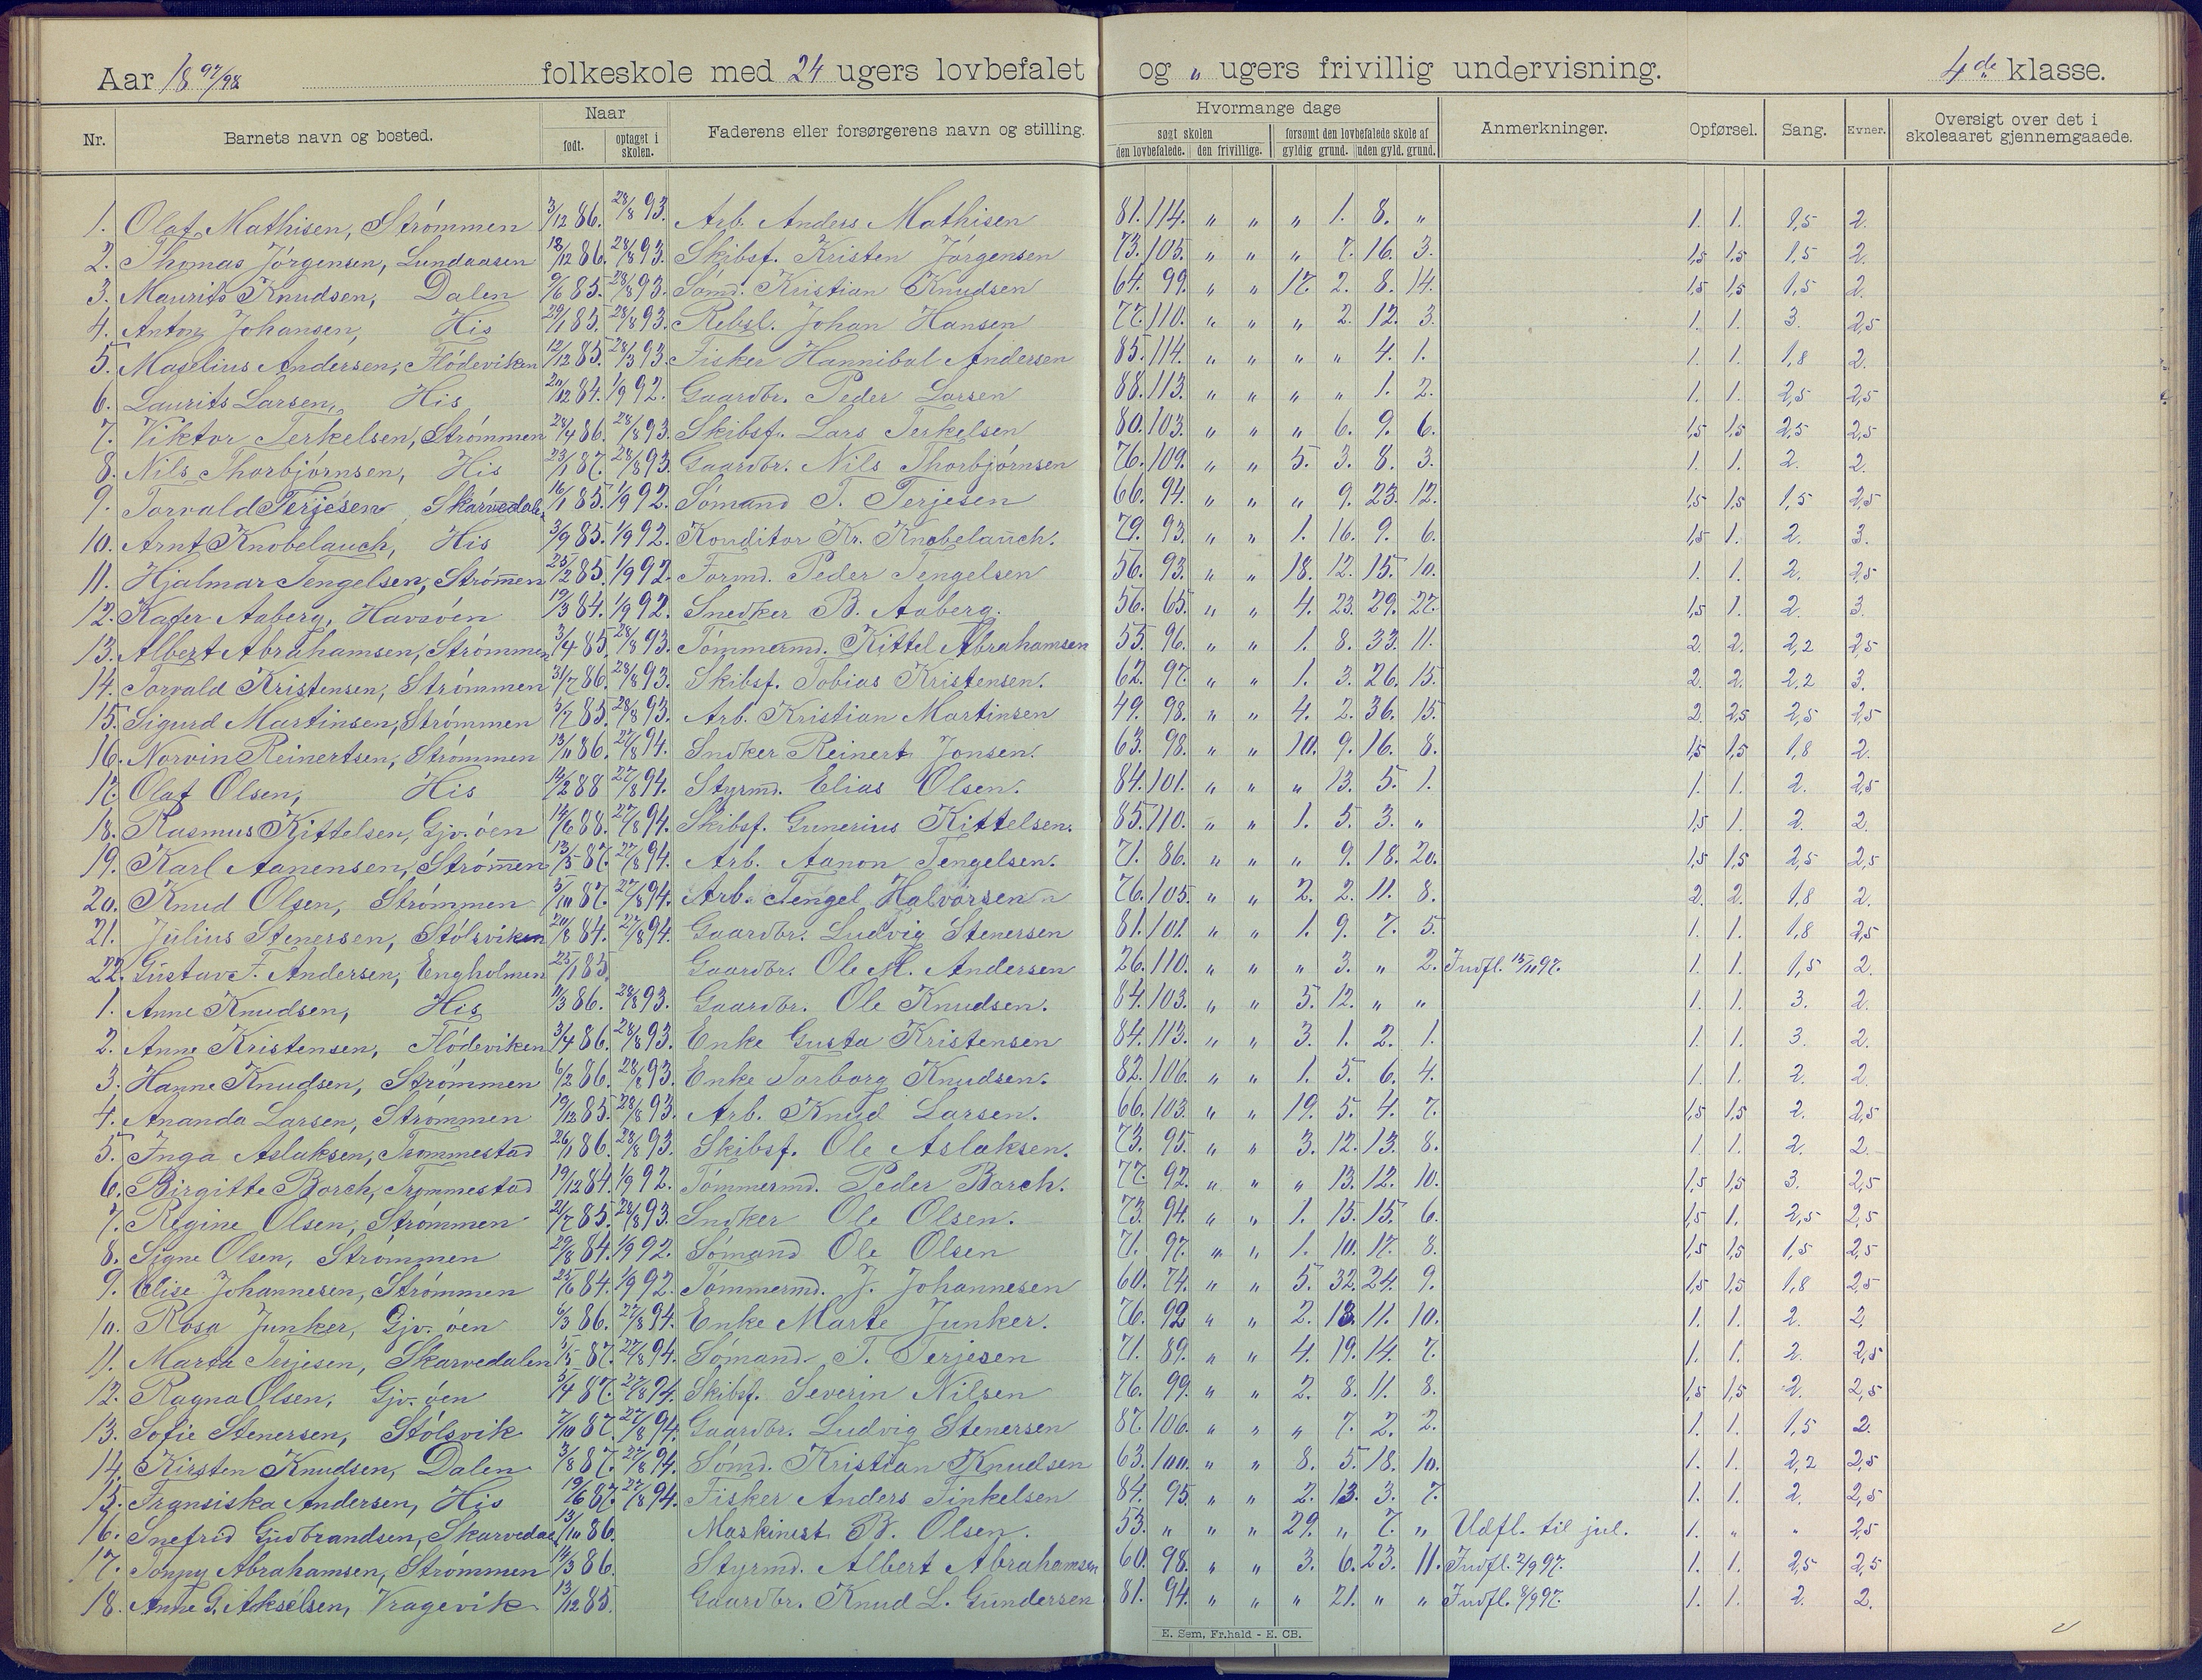 Aar 18 97/98 folkeskole med 24 ugers lovbefalet og „ ugers frivillig undervisning. 4de klasse.
Nr. Barnets navn og bosted. Naar født. optaget i skolen. Faderens eller forsørgerens navn og stilling. Hvormange dage søgt skolen den lovbefalede. den frivillige. forsømt den lovbefalede skole af gyldig grund. uden gyld. grund. Anmerkninger. Opførsel. Sang. Evner. Oversigt over det i skoleaaret gjennemgaaede.
1. Olaf Mathisen, Strömmen 3/12 86. 28/8 93. Arb. Anders Mathisen 81. 114. „ „ „ 1. 8. „ 1. 1. 1,5 2.
2. Thomas Jörgensen, Lundaasen 18/12 86. 28/8 93. Skibsf. Kristen Jörgensen 73. 105. „ „ „ 7. 16. 3. 1,5 1,5 1,5 2.
3. Maurits Knudsen, Dalen 9/6 85. 28/8 93. Sömd. Kristian Knudsen 64. 99. „ „ 17. 2. 8. 14. 1,5 1,5 1,5 2.
4. Anton Johansen, His 29/1 85. 28/8 93. Rebsl. Johan Hansen 77. 110. „ „ „ 2. 12. 3. 1. 1. 3. 2,5
5. Maselius Andersen, Flödeviken 12/12 85. 28/8 93. Fisker Hannibal Andersen 85. 114. „ „ „ „ 4. 1. 1. 1. 1,8 2.
6. Laurits Larsen, His 20/12 84. 1/9 92. Gaardbr. Peder Larsen 88. 113. „ „ „ „ 1. 2. 1. 1. 2,5 2,5
7. Viktor Terkelsen, Strömmen 28/4 86. 28/8 93. Skibsf. Lars Terkelsen 80. 103. „ „ „ 6. 9. 6. 1,5 1,5 2,5 2,5
8. Nils Thorbjörnsen, His 23/1 87. 28/8 93. Gaardbr. Nils Thorbjörnsen 76. 109. „ „ 5. 3. 8. 3. 1. 1. 2. 2.
9. Torvald Terjesen Skarvedalen 16/1 85. 1/9 92. Sömand T. Terjesen 66. 94. „ „ „ 9. 23. 12. 1,5 1,5 1,5 2,5
10. Arnt Knobelauch, His 3/9 85. 1/9 92. Konditor Kr. Knobelauch. 79. 93. „ „ 1. 16. 9. 6. 1,5 1. 2. 3.
11. Hjalmar Tengelsen, Strömen 25/2 85. 1/9 92. Formd. Peder Tengelsen 56. 93. „ „ 18. 12. 15. 10. 1. 1. 2. 2,5
12. Kafer Aaberg, Havsöen 19/3 84. 1/9 92. Snedker B. Aaberg. 56. 65. „ „ 4. 23. 29. 27. 1,5 1. 2. 3.
13. Albert Abrahamsen, Strömmen 3/4 85. 28/8 93. Tömmermd. Kittel Abrahamsen 55. 96. „ „ 1. 8. 33. 11. 2. 2. 2,2 2,5
14. Torvald Kristensen, Strömmen 31/7 86. 28/8 93. Skibsf. Tobias Kristensen. 62. 97. „ „ 1. 3. 26. 15. 2. 2. 2,2 3.
15. Sigurd Martinsen, Strömmen 5/7 85. 28/8 93. Arb. Kristian Martinsen 49. 98. „ „ 4. 2. 36. 15. 2. 2,5 2,5 2,5
16. Norvin Reinertsen, Strömmen 13/11 86. 27/8 94. Sndker Reinert Jonsen. 63. 98. „ „ 10. 9. 16. 8. 1,5 1,5 1,8 2.
17. Olaf Olsen, His 14/2 88 27/8 94. Styrmd. Elias Olsen. 84. 101. „ „ „ 13. 5. 1. 1. 1. 2. 2,5
18. Rasmus Kittelsen, Gjv. öen 14/6 88. 27/8 94. Skibsf. Gunerius Kittelsen. 85. 110. „ „ 1. 5. 3. „ 1,5 1. 2. 2.
19. Karl Aanensen, Strömen 13/5 87. 27/8 94. Arb. Aanon Tengelsen. 71. 86. „ „ „ 9. 18. 20. 1,5 1,5 2,5 2,5
20. Knud Olsen, Strömmen 5/10 87. 27/8 94. Arb. Tengel Halvorsen 76. 105. „ „ 2. 2. 11. 8. 2. 2. 1,8 2.
21. Julius Stenersen, Stölsviken 20/8 84. 27/8 94. Gaardbr. Ludvig Stenersen 81. 101. „ „ 1. 9. 7. 5. 1. 1. 1,8 2,5
22. Gustav F. Andersen, Engholmen 25/1 85. Gaardbr. Ole M. Andersen 26. 110. „ „ „ 3. „ 2. Indfl. 15/11 97. 1. 1. 1,5 2.
1. Anne Knudsen, His 11/3 86. 28/8 93. Gaardbr. Ole Knudsen. 84. 103. „ „ 5. 12. „ „ 1. 1. 3. 2.
2. Anne Kristensen, Flödeviken 3/4 86. 28/8 93. Enke Gusta Kristensen 84. 113. „ „ 3. 1. 2. 1. 1. 1. 3. 2.
3. Hanne Knudsen, Strömmen 6/2 86. 28/8 93. Enke Torborg Knudsen. 82. 106. „ „ 1. 5. 6. 4. 1. 1. 2. 2.
4. Ananda Larsen, Strömmen 19/12 85. 28/8 93. Arb. Knud Larsen. 66. 103. „ „ 19. 5. 4. 7. 1,5 1,5 2. 2,5
5. Inga Aslaksen, Trommestad 26/1 86. 28/8 93. Skibsf. Ole Aslaksen. 73. 95. „ „ 3. 12. 13. 8. 1. 1. 2. 2.
6. Birgitte Borch, Trommestad 19/12 84. 1/9 92. Tömmermd. Peder Borch. 77. 92. „ „ „ 13. 12. 10. 1,5 1,5 3. 2,5
7. Regine Olsen, Strömmen 21/7 85. 28/8 93. Sndker Ole Olsen. 73. 94. „ „ 1. 15. 15. 6. 1,5 1. 2,5 2,5
8. Signe Olsen, Strömmen 29/8 84. 1/9 92. Sömand Ole Olsen 71. 97. „ „ 1. 10. 17. 8. 1,5 1,5 1,5 2,5
9. Elise Johannesen, Strömmen 25/6 84. 1/9 92. Tömmermd. J. Johannesen 60. 74. „ „ 5. 32. 24. 9. 1,5 1,5 1,8 2,5
10. Rosa Junker, Gjv. öen 6/3 86. 27/8 94. Enke Marte Junker. 76. 92 „ „ 2. 13. 11. 10. 1. 1. 2. 2.
11. Marta Terjesen, Skarvedalen 5/5 87. 27/8 94. Sömand T. Terjesen 71. 89. „ „ 4. 19. 14. 7. 1. 1. 2. 2,5
12. Ragna Olsen, Gjv. öen 5/4 87. 27/8 94. Skibsf. Severin Nilsen 76. 99. „ „ 2. 8. 11. 8. 1,5 1,5 2. 2,5
13. Sofie Stenersen, Stölsvik 7/10 87. 27/8 94. Gaardbr. Ludvig Stenersen 87. 106. „ „ „ 7. 2. 2. 1. 1. 1,5 2.
14. Kirsten Knudsen, Dalen 3/8 87. 27/8 94. Sömd. Kristian Knudsen 63. 100. „ „ 8. 5. 18. 10. 1. 1. 2,2 2,5
15. Fransiska Andersen, His 19/6 87. 27/8 94. Fisker Anders Finkelsen 84. 95. „ „ 2. 13. 3. 7. 1. 1. 2. 2,5
16. Snefrid Gudbrandsen, Skarvedal 13/10 86. Maskinist B. Olsen. 53. „ „ „ 29. „ 7. „ Udfl. til jul. 1. „ „ 2,5
17. Tonny Abrahamsen, Strömmen 14/3 86. Styrmd. Albert Abrahamsen 60. 98. „ „ 3. 6. 23. 11. Indfl. 2/9 97. 1. 1. 2,5 2,5
18. Anne G. Akselsen, Vragevik 13/12 85. Gaardbr. Knud L. Gundersen 81. 94. „ „ „ 21. „ „ Indfl. 8/9 97. 1. 1. 2. 2.
E. Sem, Fr.hald - E. CB.